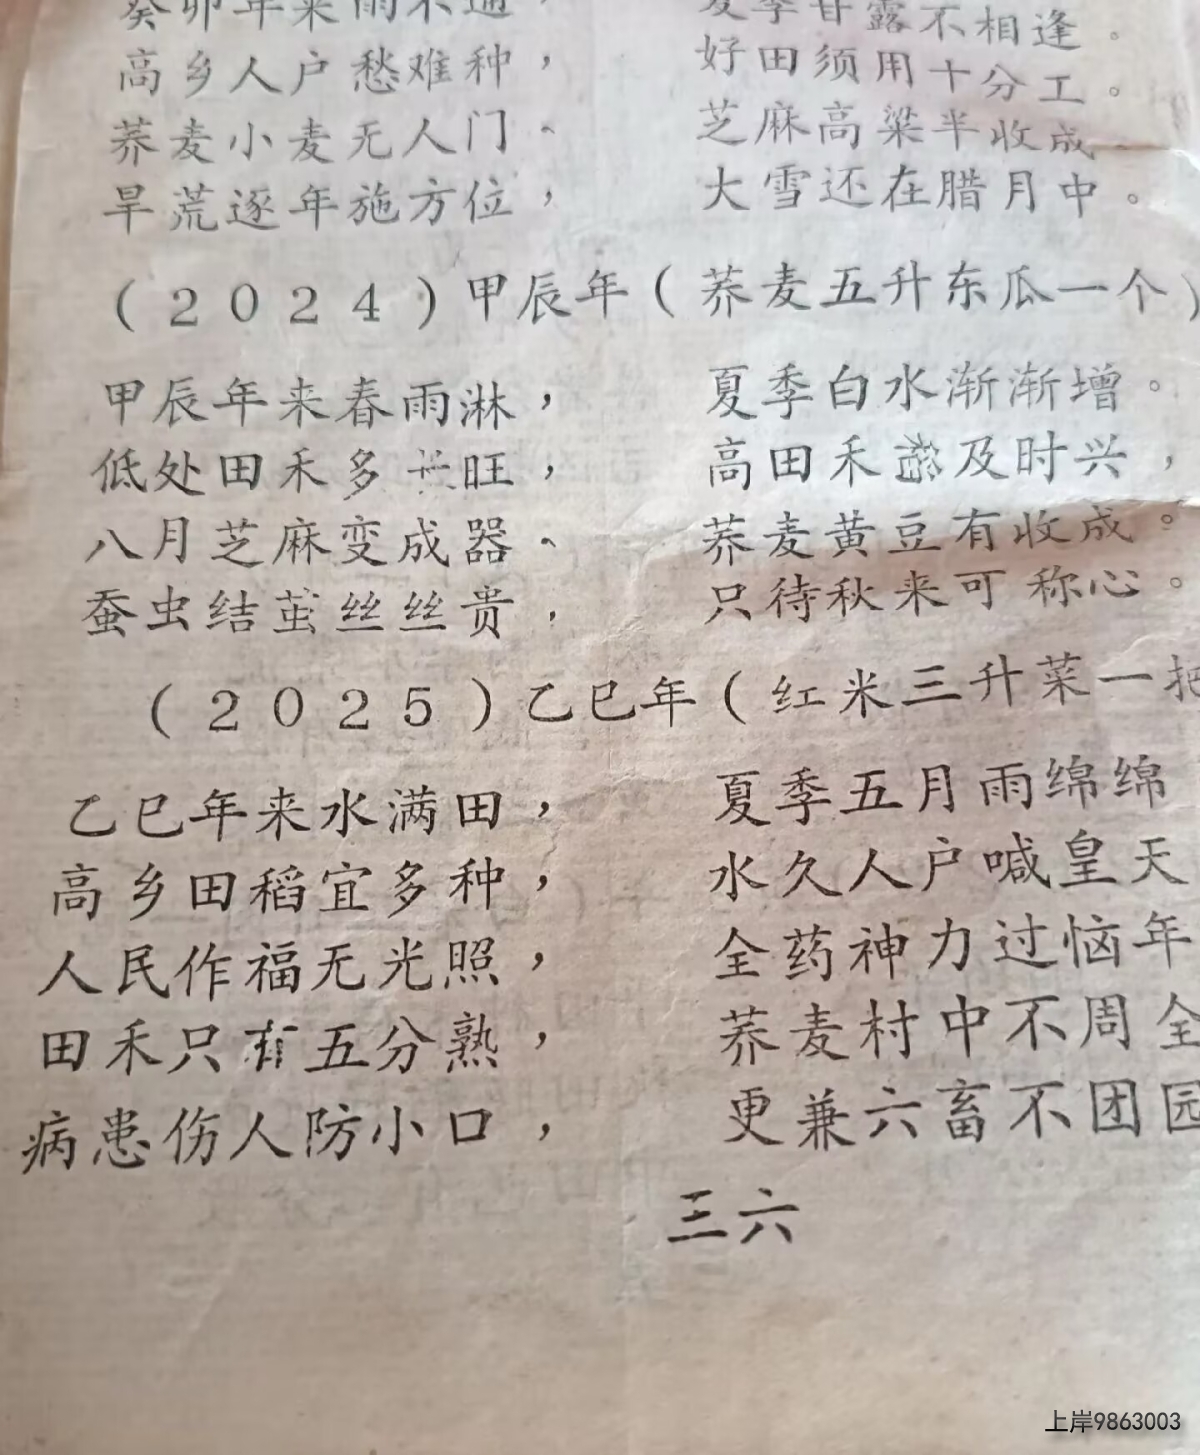 癸卯年来雨不通， 夏季甘露不相逢。
高乡人户愁难种， 好田须用十分工。
荞麦小麦无人门、 芝麻高粱半收成
旱荒逐年施方位， 大雪还在腊月中。
（2024）甲辰年（荞麦五升东瓜一个）
甲辰年来春雨淋， 夏季白水渐渐增。
低处田禾多长旺， 高田禾 及时兴，
八月芝麻变成器、 荞麦黄豆有收成。
蚕虫结茧丝丝贵， 只待秋来可称心。
（2025）乙巳年（红米三升菜一把
乙巳年来水满田， 夏季五月雨绵绵
高乡田稻宜多种， 水久人户喊皇天
人民作福无光照， 全药神力过恼年
田禾只有五分熟， 荞麦村中不周全
病患伤人防小口， 更兼六畜不团园
三六
上岸9863003